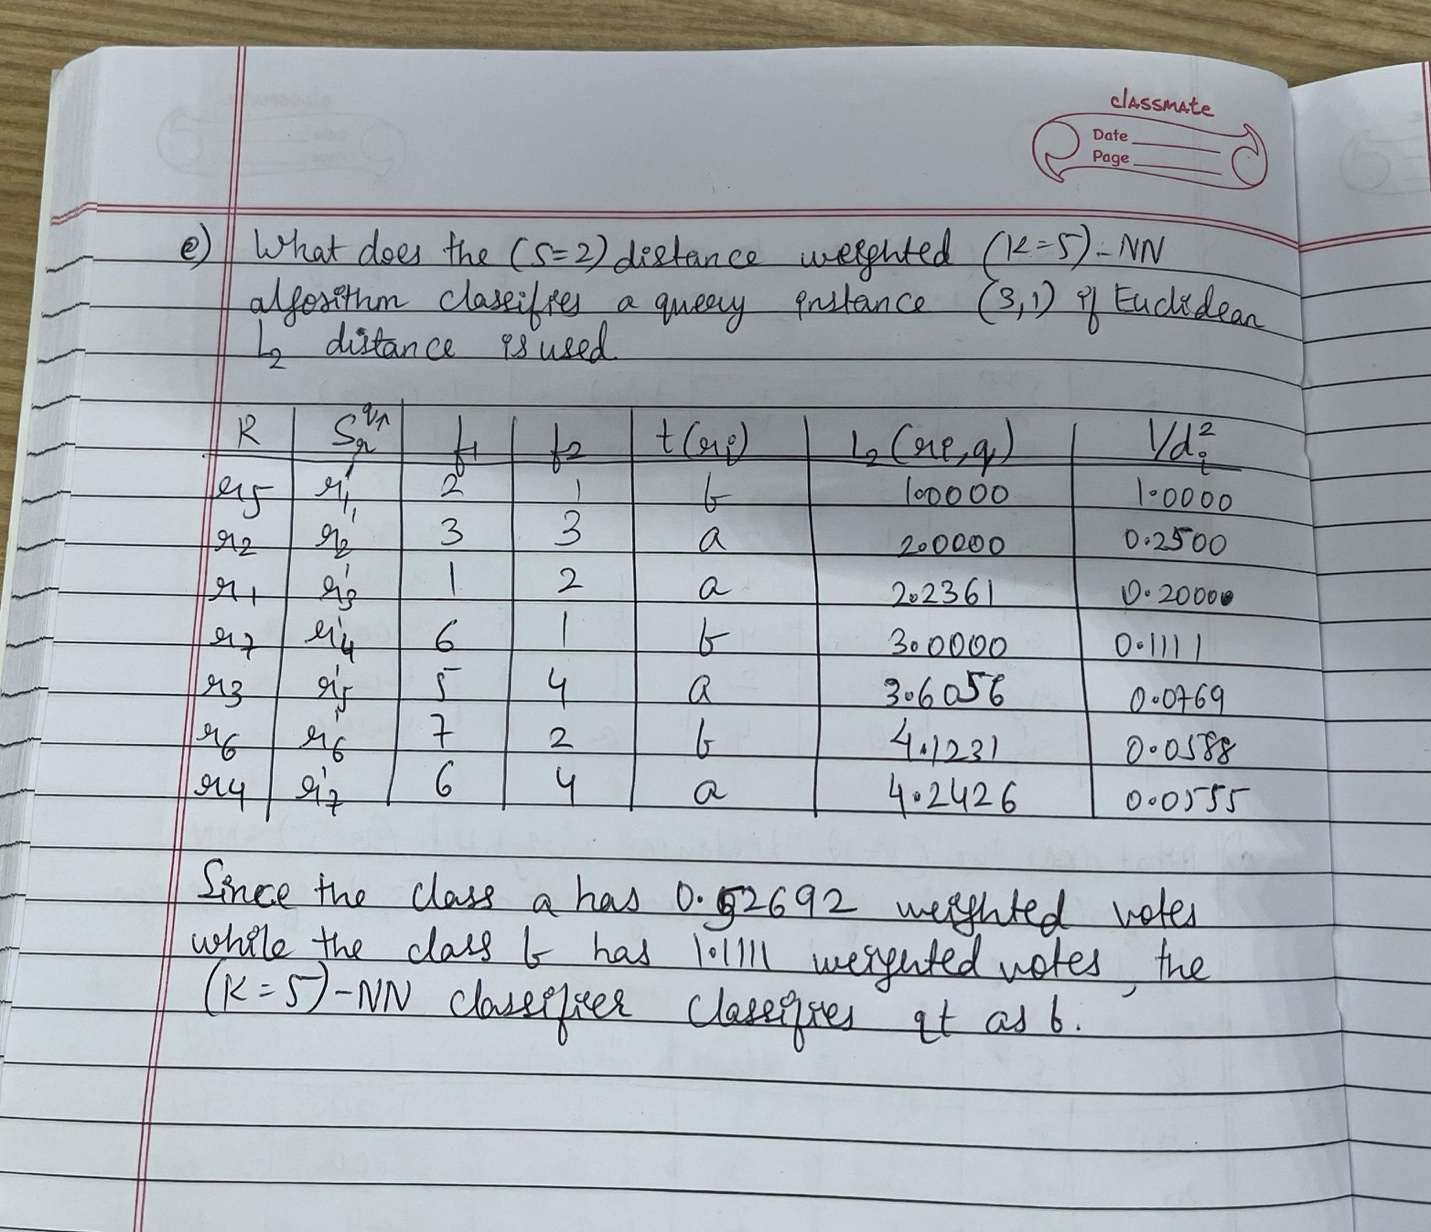 classmate
Date
Page
e) What does the (S=2) distance weighted (K=5)-NN
algorithm classifies a query instance (3,1) if Euclidean
L2 distance is used.
R | | f1 | f2 | t(ri) | L2(ri,q) | 1/di²
r5 | r'1 | 2 | 1 | b | 1.00000 | 1.0000
r2 | r'2 | 3 | 3 | a | 2.0000 | 0.2500
r1 | r'3 | 1 | 2 | a | 2.2361 | 0.20000
r7 | r'4 | 6 | 1 | b | 3.0000 | 0.1111
r3 | r'5 | 5 | 4 | a | 3.6056 | 0.0769
r6 | r'6 | 7 | 2 | b | 4.1231 | 0.0588
r4 | r'7 | 6 | 4 | a | 4.2426 | 0.0555
Since the class a has 0.52692 weighted votes
while the class b has 1.1111 weighted votes, the
(K=5)-NN classifier classifies it as b.